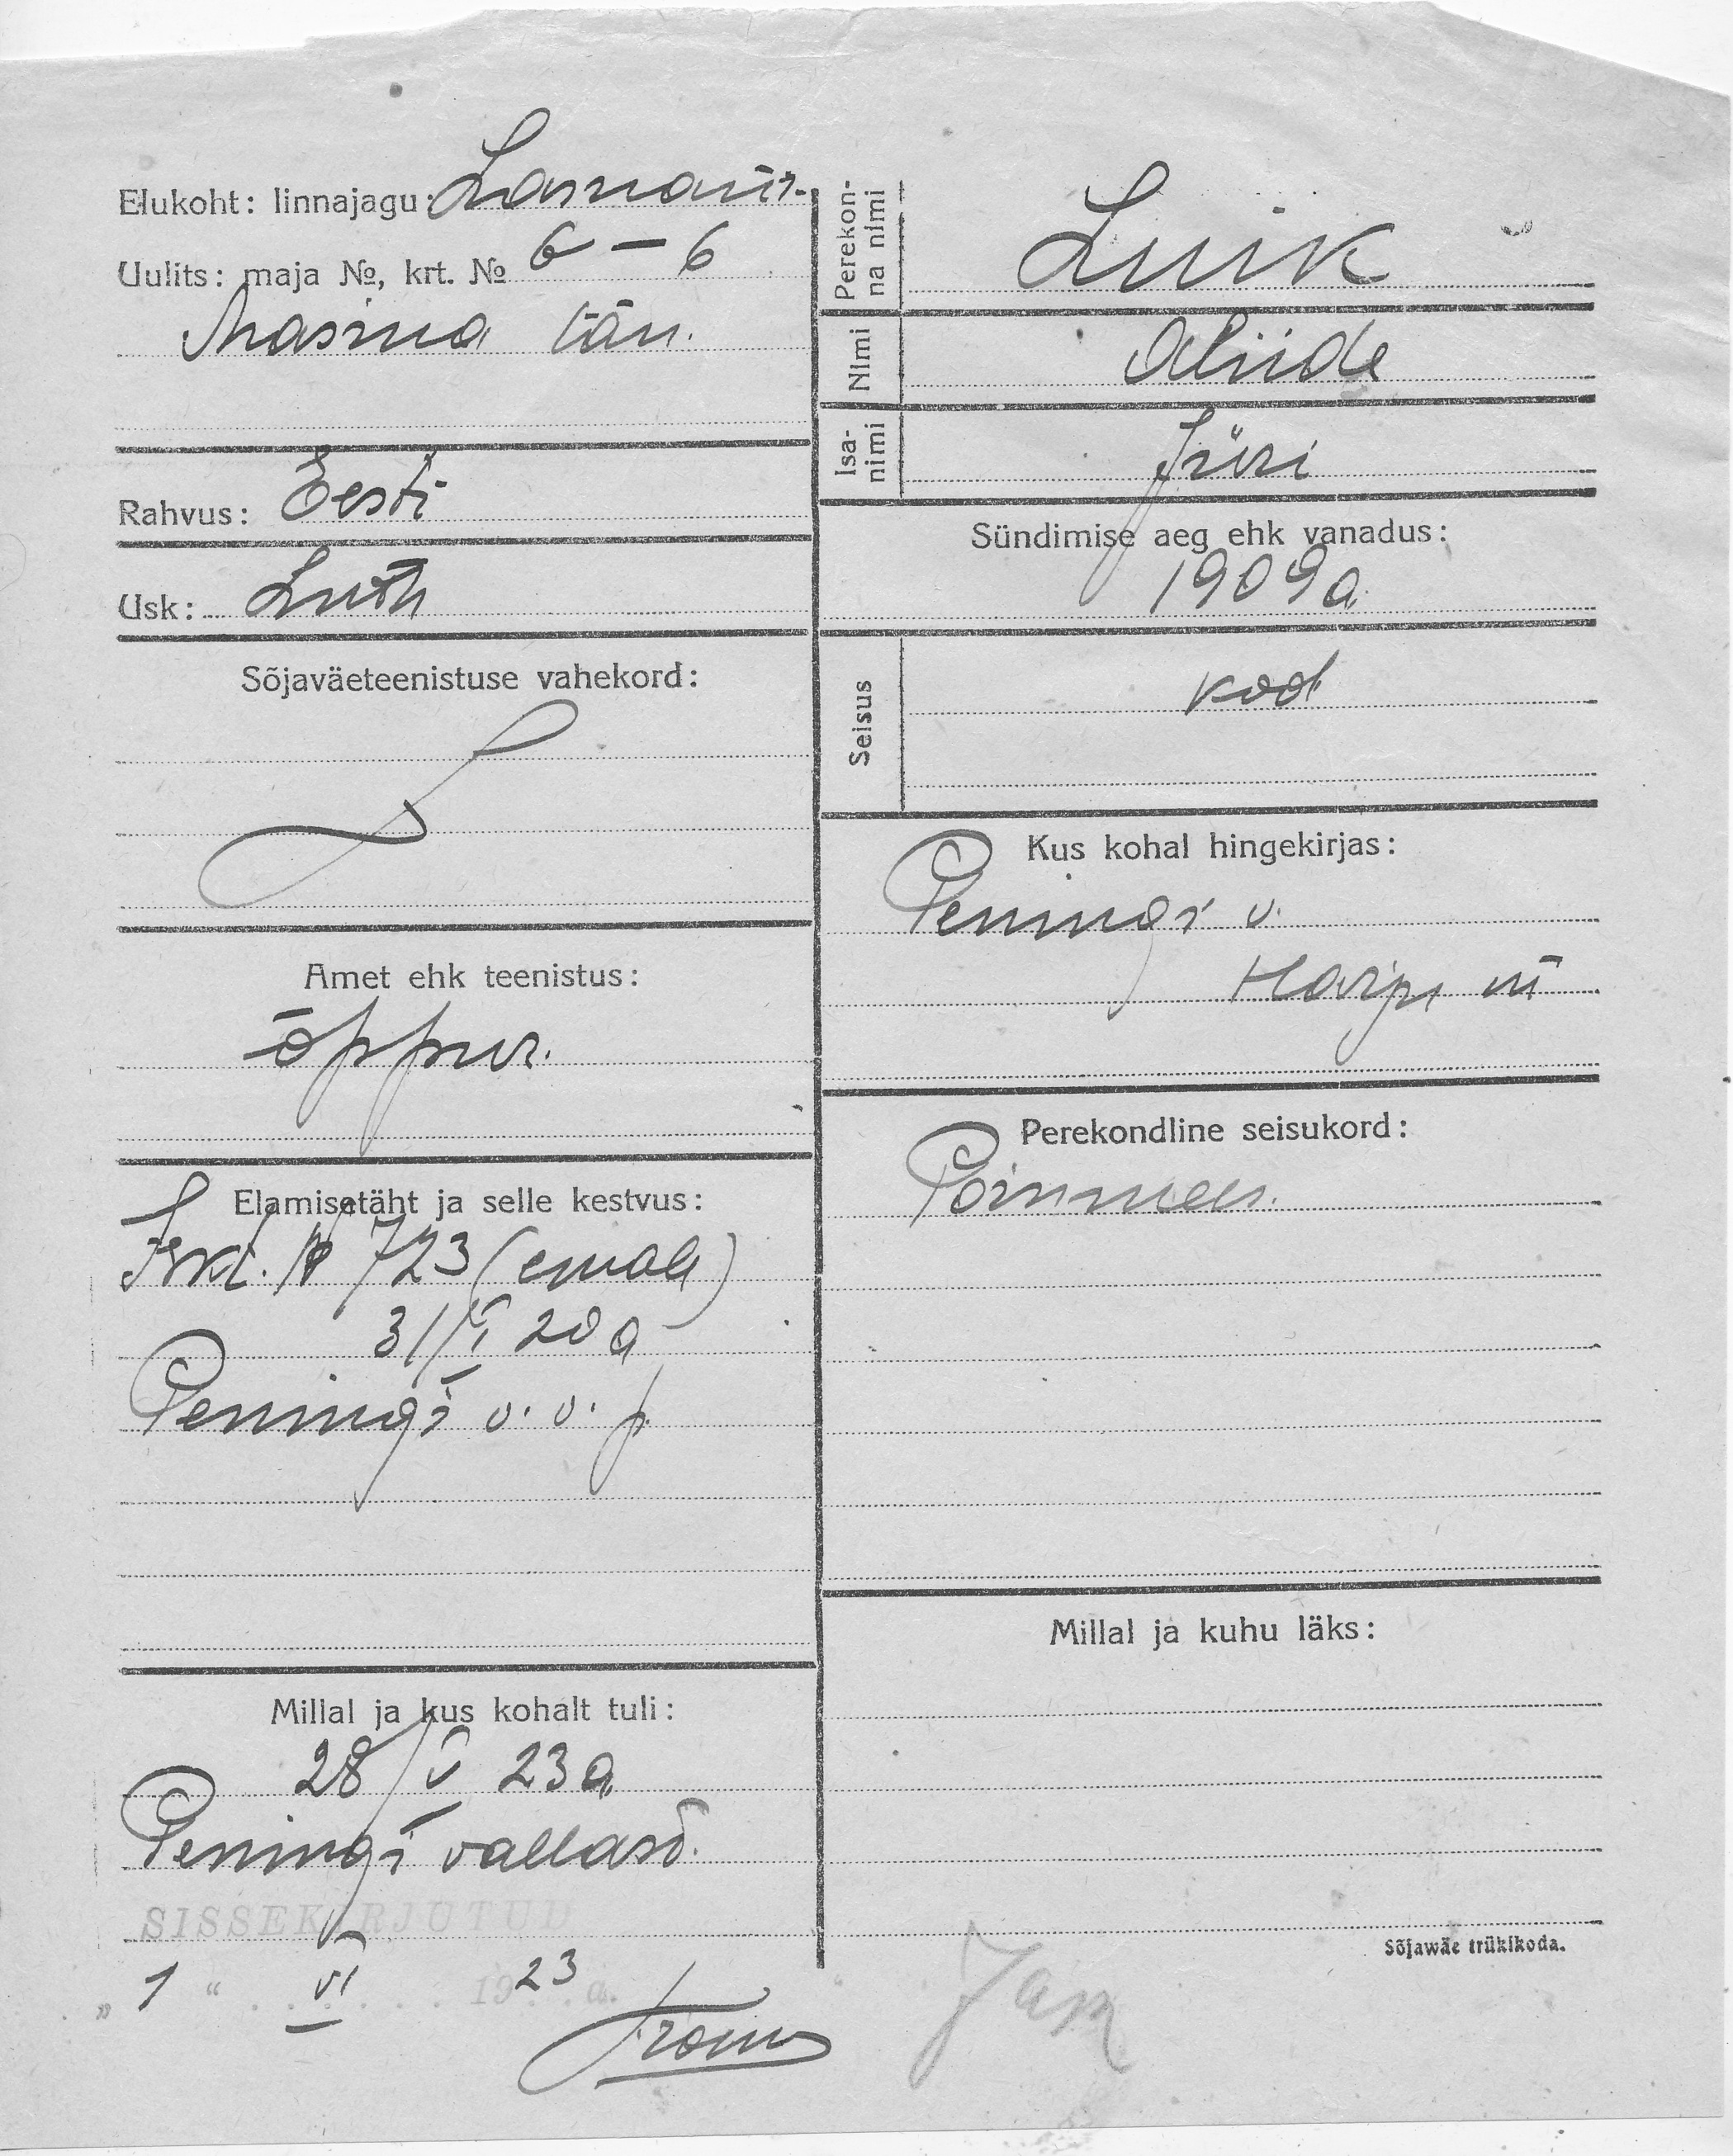 Elukoht: linnajagu: Lasnam.
Uulits: maja №, krt. № 6 – 6
Masina tän.
Rahvus: Eesti
Usk: Luth
Sõjaväeteenistuse vahekord:
Amet ehk teenistus:
õppur.
Elamisetäht ja selle kestvus:
Iskt. № 723 (emale)
31/VI 20 a
Peningi v. v. p.
Millal ja kus kohalt tuli:
28/V 23 a
Peningi vallast.
SISSEKIRJUTUD
" 1 " VI 1923 a.
Perekon-
na nimi
Luik
Nimi
Aliide
Isa-
nimi
Jüri
Sündimise aeg ehk vanadus:
1909 a.
Seisus
kod
Kus kohal hingekirjas:
Peningi v.
Harju m
Perekondline seisukord:
Millal ja kuhu läks:
Sõjawäe trükikoda.